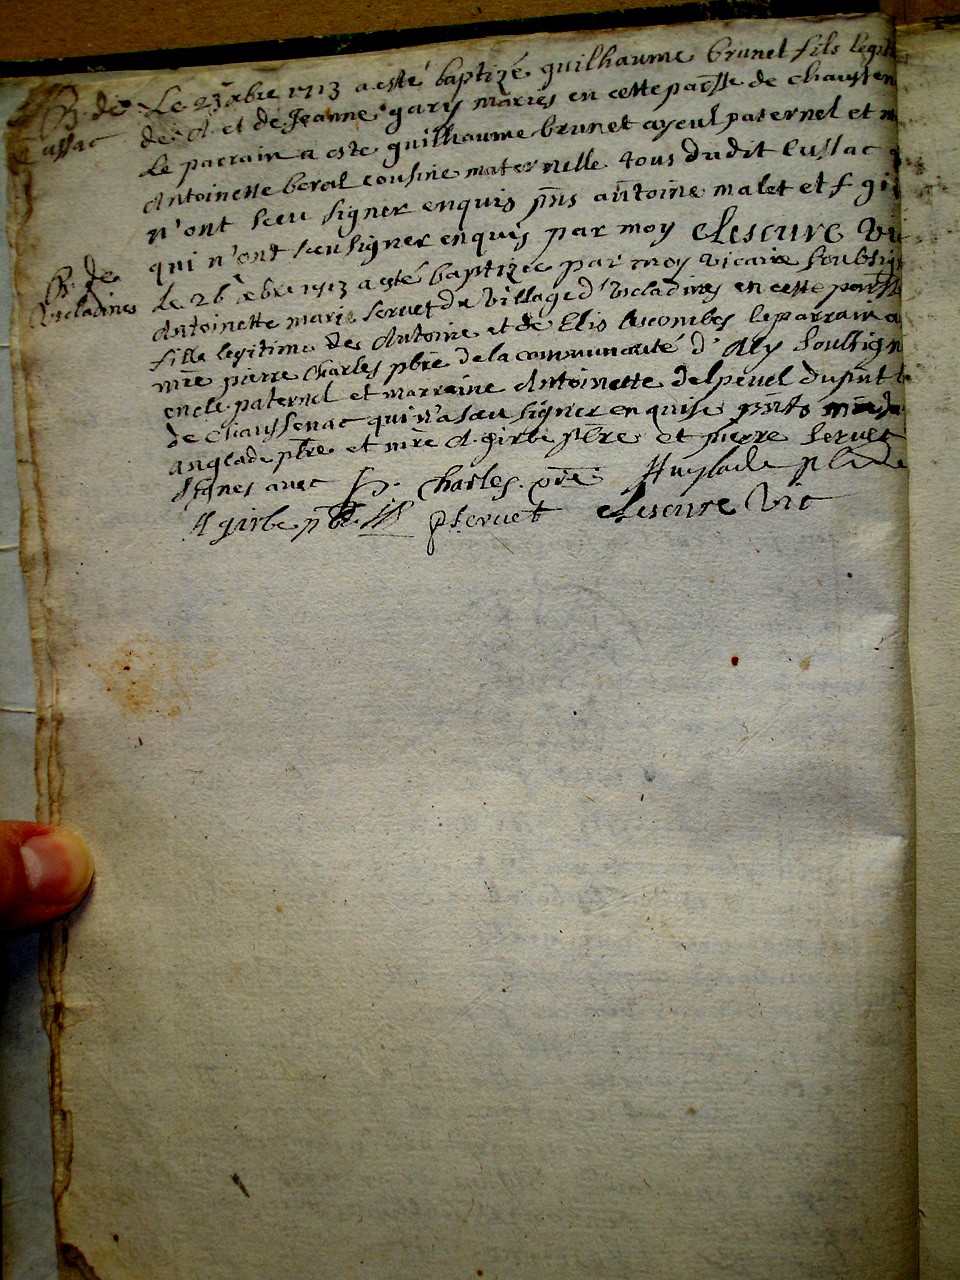 B. de Le 23 xbre 1713 a esté baptizé guilhaume brunet fils legit
Cussac de A et de Jeanne garis mariés en cette parsse de chaussen
Le parrain a esté guilhaume brunet ayeul paternel et m
Antoinette beral cousine maternelle tous dudit Cussac q
n'ont sceu signer enquis pns antoine malet et f gi
qui n'ont sceu signer enquis par moy Clescure vi
B. de
Escladines Le 26 xbre 1713 a esté baptizée par moy vicaire soubsig
Antoinette marie servet du village d'Escladines en cette parsse
fille legitime de Antoine et de Elis lescombes le parrain a
mre pierre Charles pbre de la communauté d'Aly soussign
oncle paternel et marraine Antoinette delpeuch du
de chaussenac qui n'a sceu signer enquise pnts
anglade pbre et mre A. girbe pbre et pierre servet
signes avec P. Charles. pbre Anglade pbre
A girbe pbre P servet Clescure vic